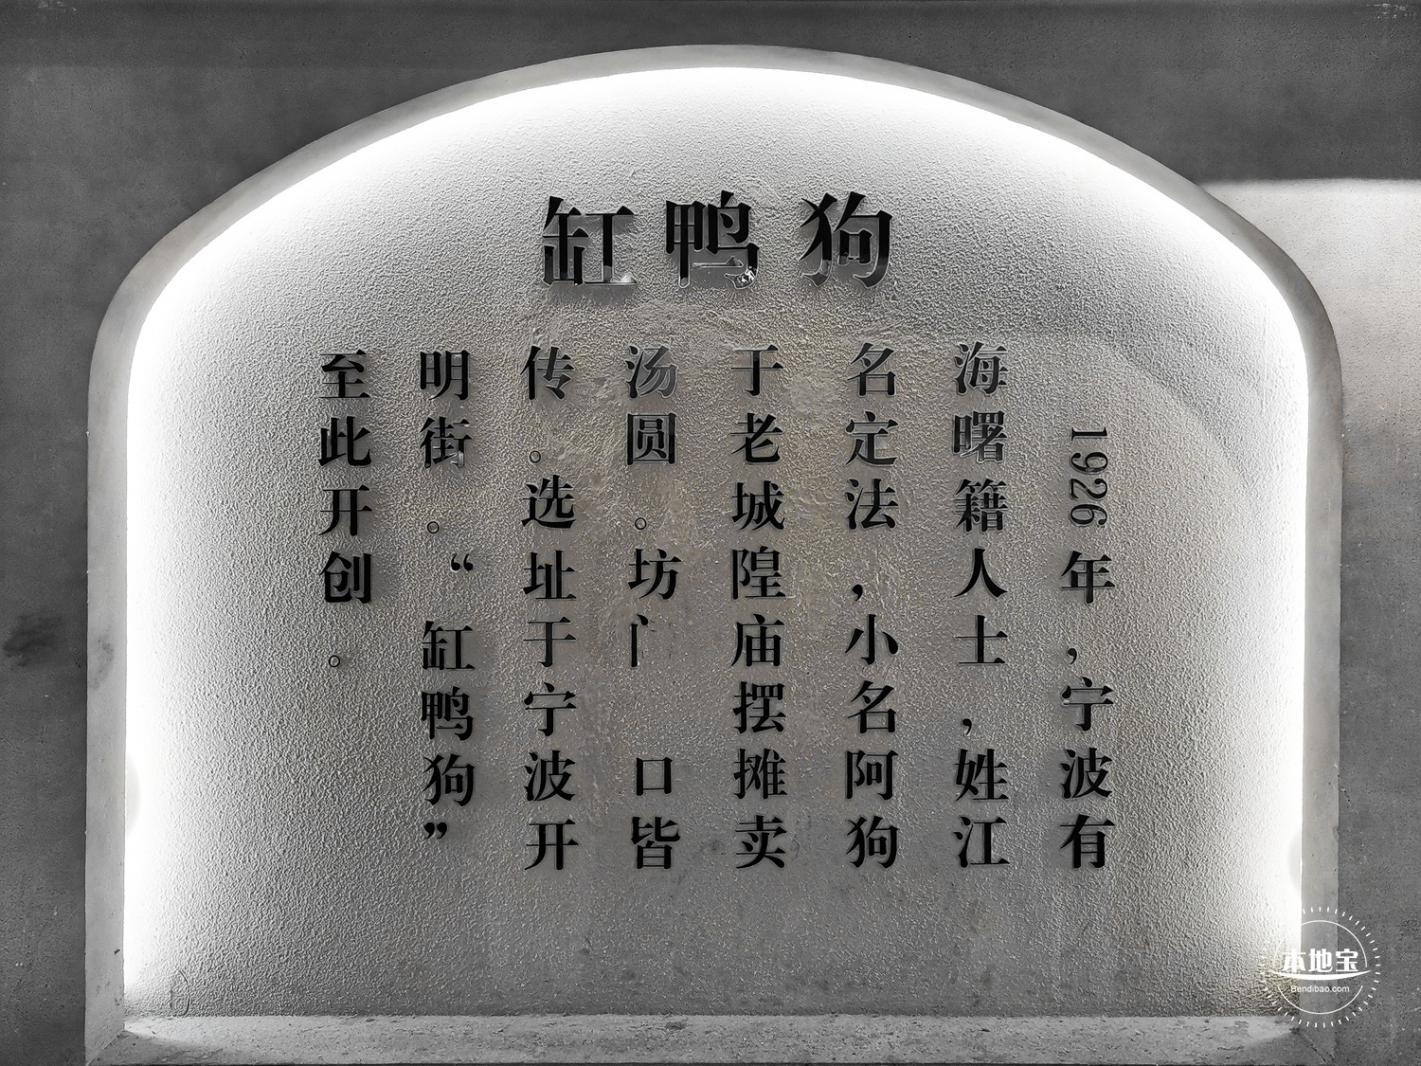 缸鸭狗
1926年，宁波有
海曙籍人士，姓江
名定法，小名阿狗
于老城隍庙摆摊卖
汤圆。坊门口皆
传。选址于宁波开
明街。“缸鸭狗”
至此开创。
本地宝
Bendibao.com